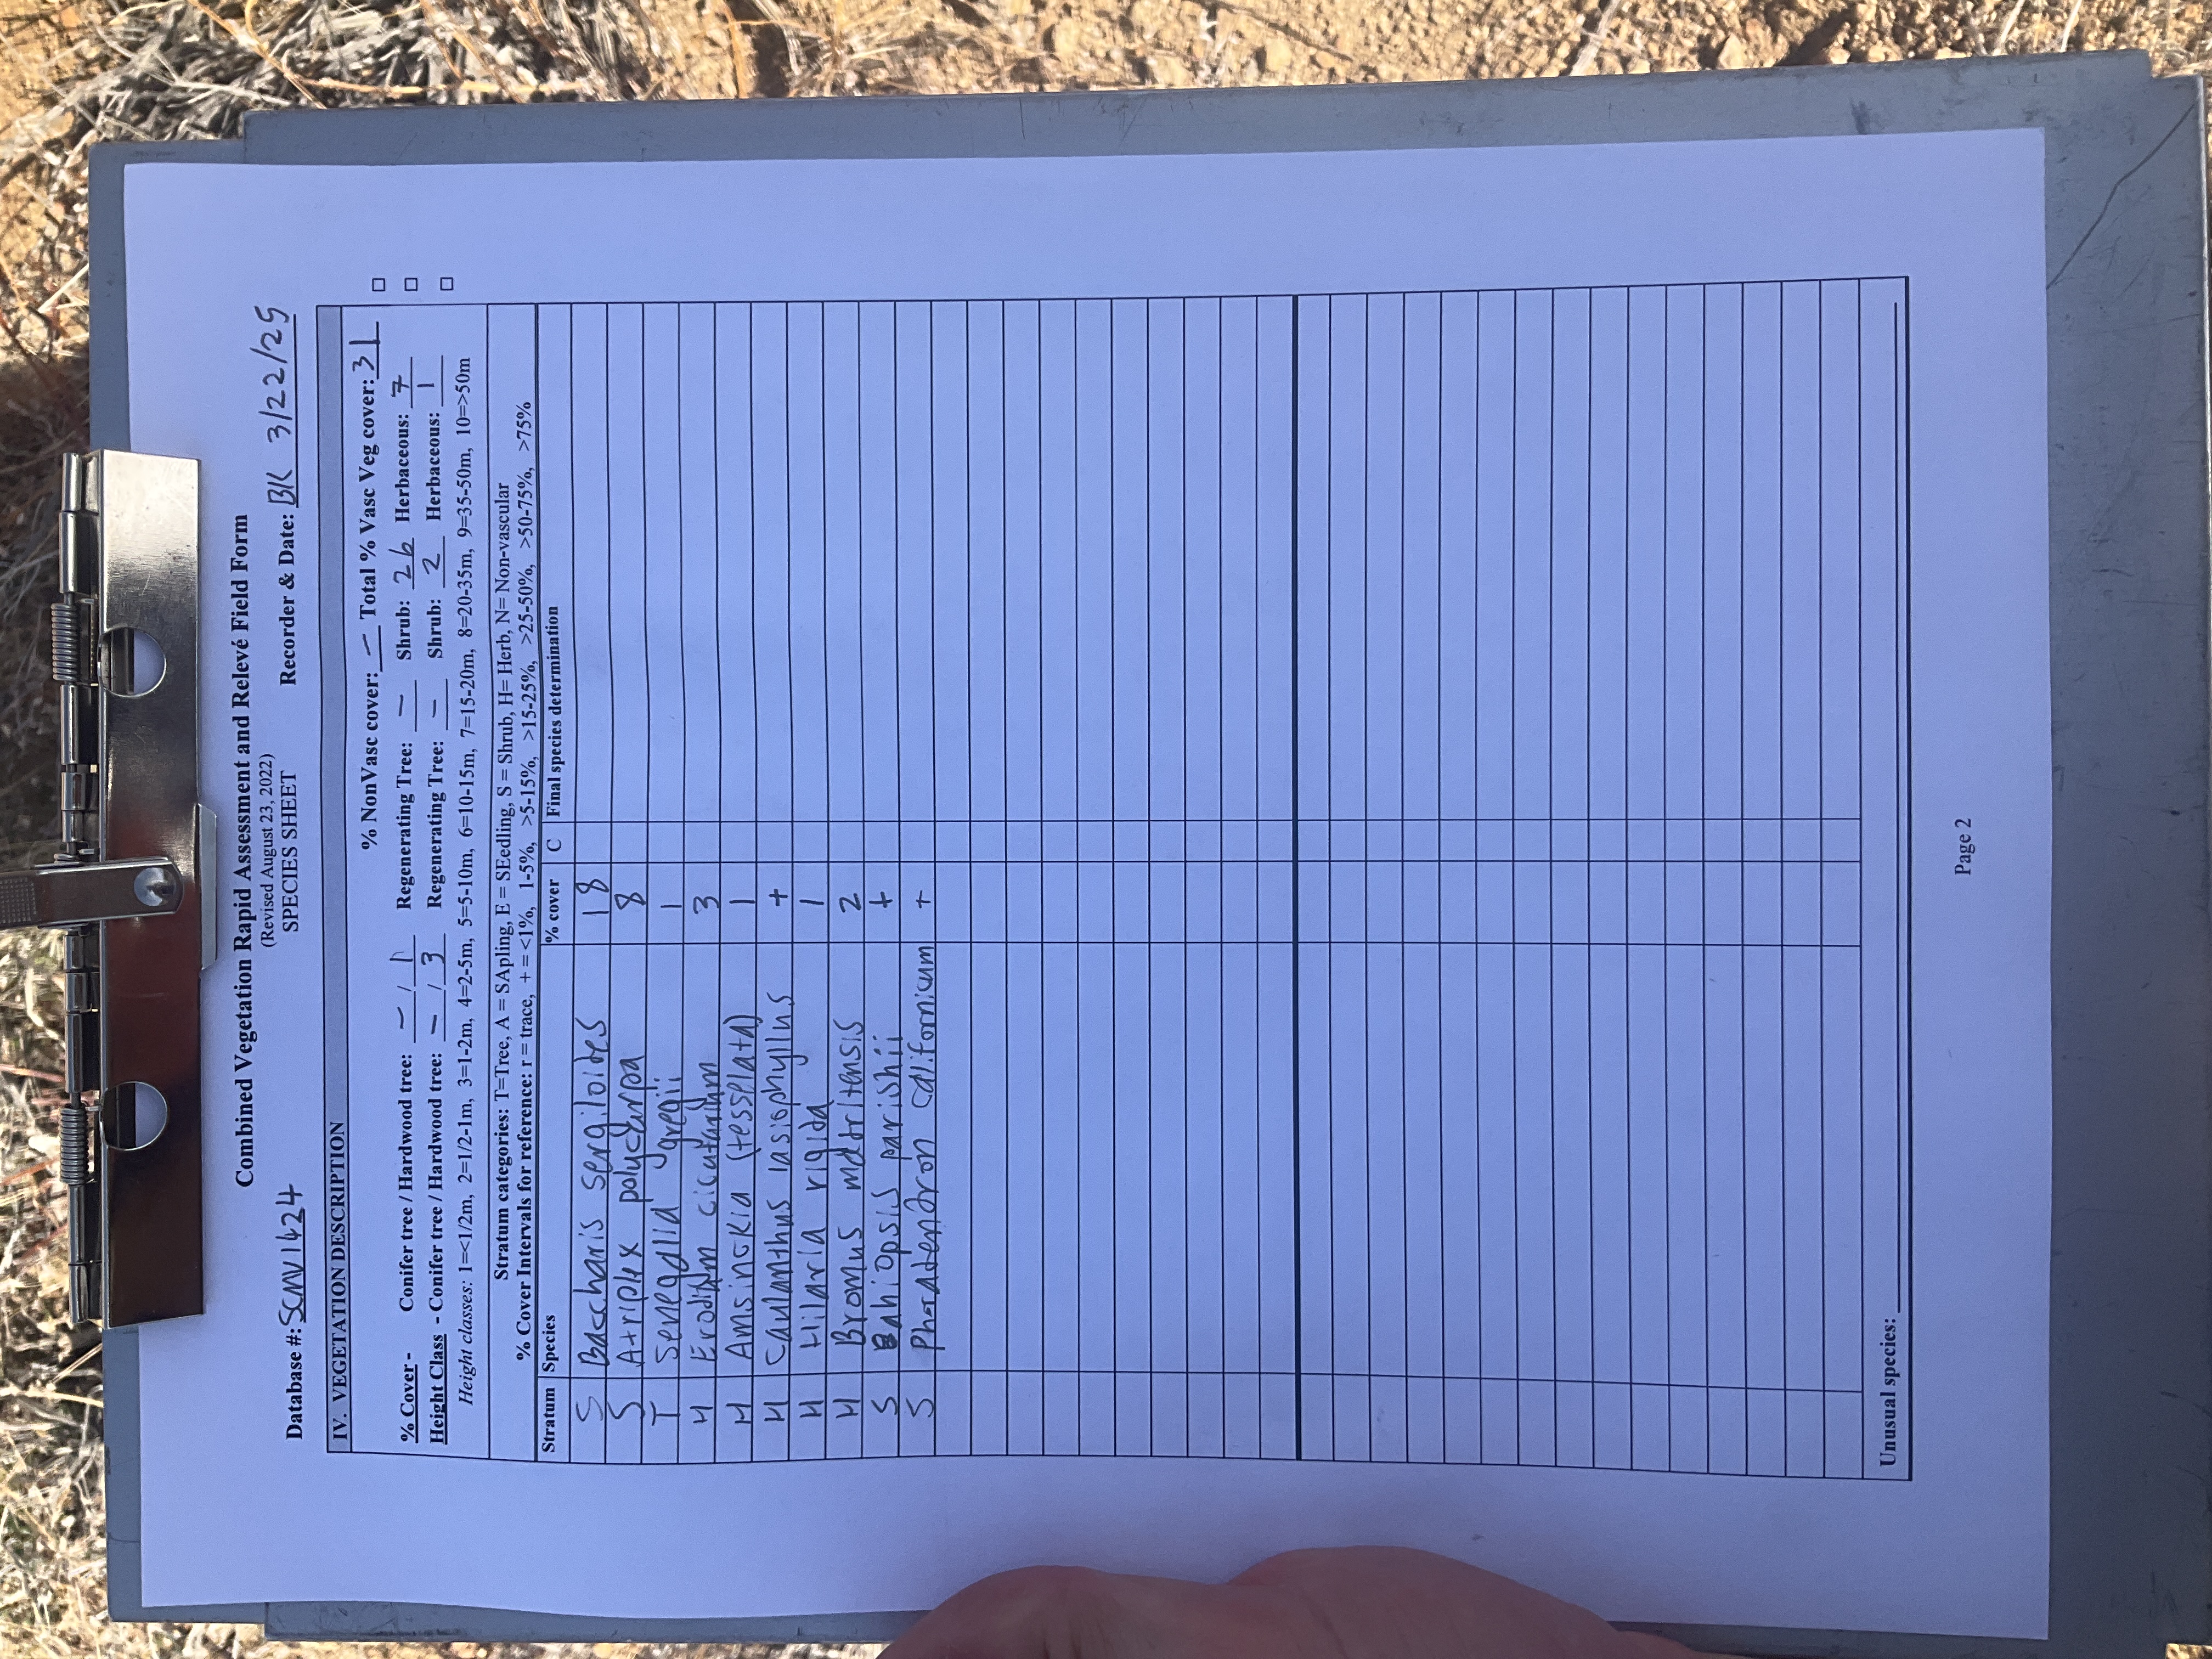 Combined Vegetation Rapid Assessment and Relevé Field Form
(Revised August 23, 2022)
SPECIES SHEET
Database #: SCNV1424 Recorder & Date: BK 3/22/25
IV. VEGETATION DESCRIPTION
% NonVasc cover: – Total % Vasc Veg cover: 31 □
% Cover - Conifer tree / Hardwood tree: – / 1 Regenerating Tree: – Shrub: 26 Herbaceous: 7 □
Height Class - Conifer tree / Hardwood tree: – / 3 Regenerating Tree: – Shrub: 2 Herbaceous: 1 □
Height classes: 1=<1/2m, 2=1/2-1m, 3=1-2m, 4=2-5m, 5=5-10m, 6=10-15m, 7=15-20m, 8=20-35m, 9=35-50m, 10=>50m
Stratum categories: T=Tree, A = SApling, E = SEedling, S = Shrub, H= Herb, N= Non-vascular
% Cover Intervals for reference: r = trace, + = <1%, 1-5%, >5-15%, >15-25%, >25-50%, >50-75%, >75%
Stratum Species % cover C Final species determination
S Baccharis sergiloides 18
S Atriplex polycarpa 8
T Senegalia gregii 1
H Erodium cicutarium 3
H Amsinckia (tesselata) 1
H Caulanthus lasiophyllus +
H Hilaria rigida 1
H Bromus madritensis 2
S Bahiopsis parishii +
S Phoradendron californicum +
Unusual species:
Page 2